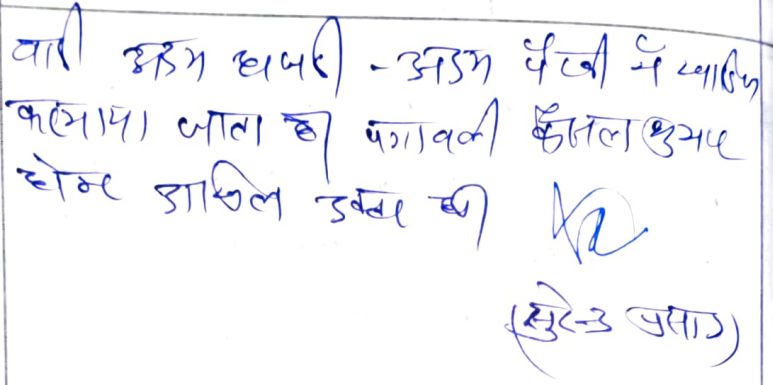 वाद अदम हाजरी - अदम पैरवी में खारिज
किया जाता है। पत्रावली फैसल शुमार
होकर दाखिल दफ्तर हो।
(सुरेन्द्र प्रसाद)